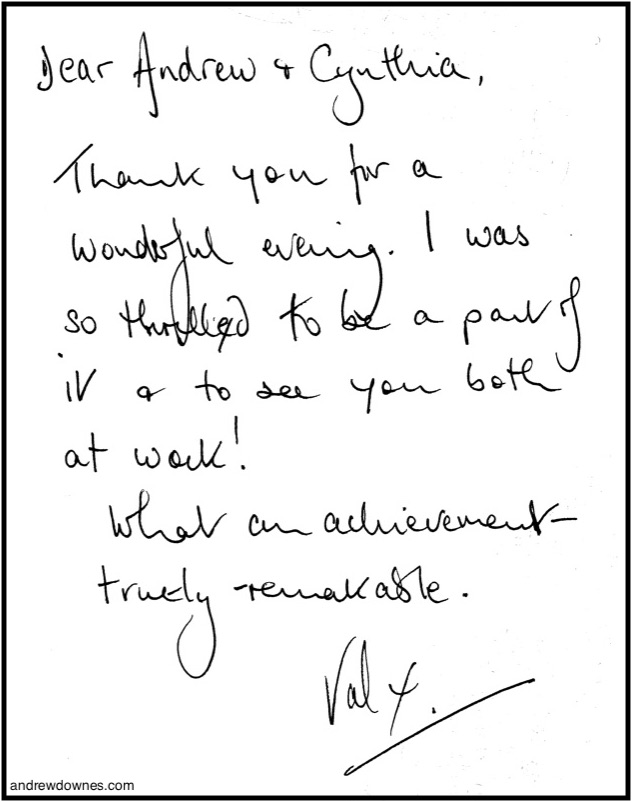 Dear Andrew & Cynthia,
Thank you for a
wonderful evening. I was
so thrilled to be a part of
it & to see you both
at work!
What an achievement–
truely remarkable.
Val x.
andrewdownes.com